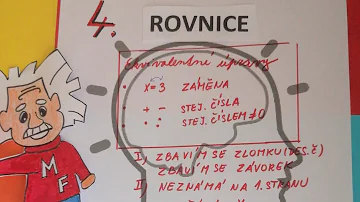 4.
ROVNICE
Ekvivalentní úpravy
• X=3 ZÁMĚNA
• + - STEJ. ČÍSLA
• · : STEJ. ČÍSLEM ≠0
I) ZBAVÍM SE ZLOMKU (DES.Č)
ZBAVÍM SE ZÁVOREK
II) NEZNÁMÁ NA 1.STRANU
M F